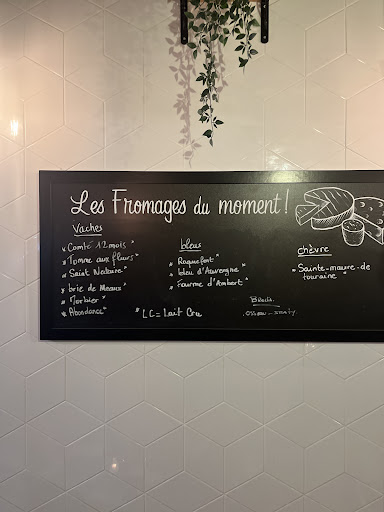 Les Fromages du moment!
Vaches
Comté 12 mois"
Tomme aux fleurs"
Saint Nectaire"
brie de Meaux"
Morbier"
Abondance"
bleus
Roquefort"
bleu d'Auvergne"
Fourme d'Ambert"
LC = Lait Cru
chèvre
Sainte-maure-de
touraine"